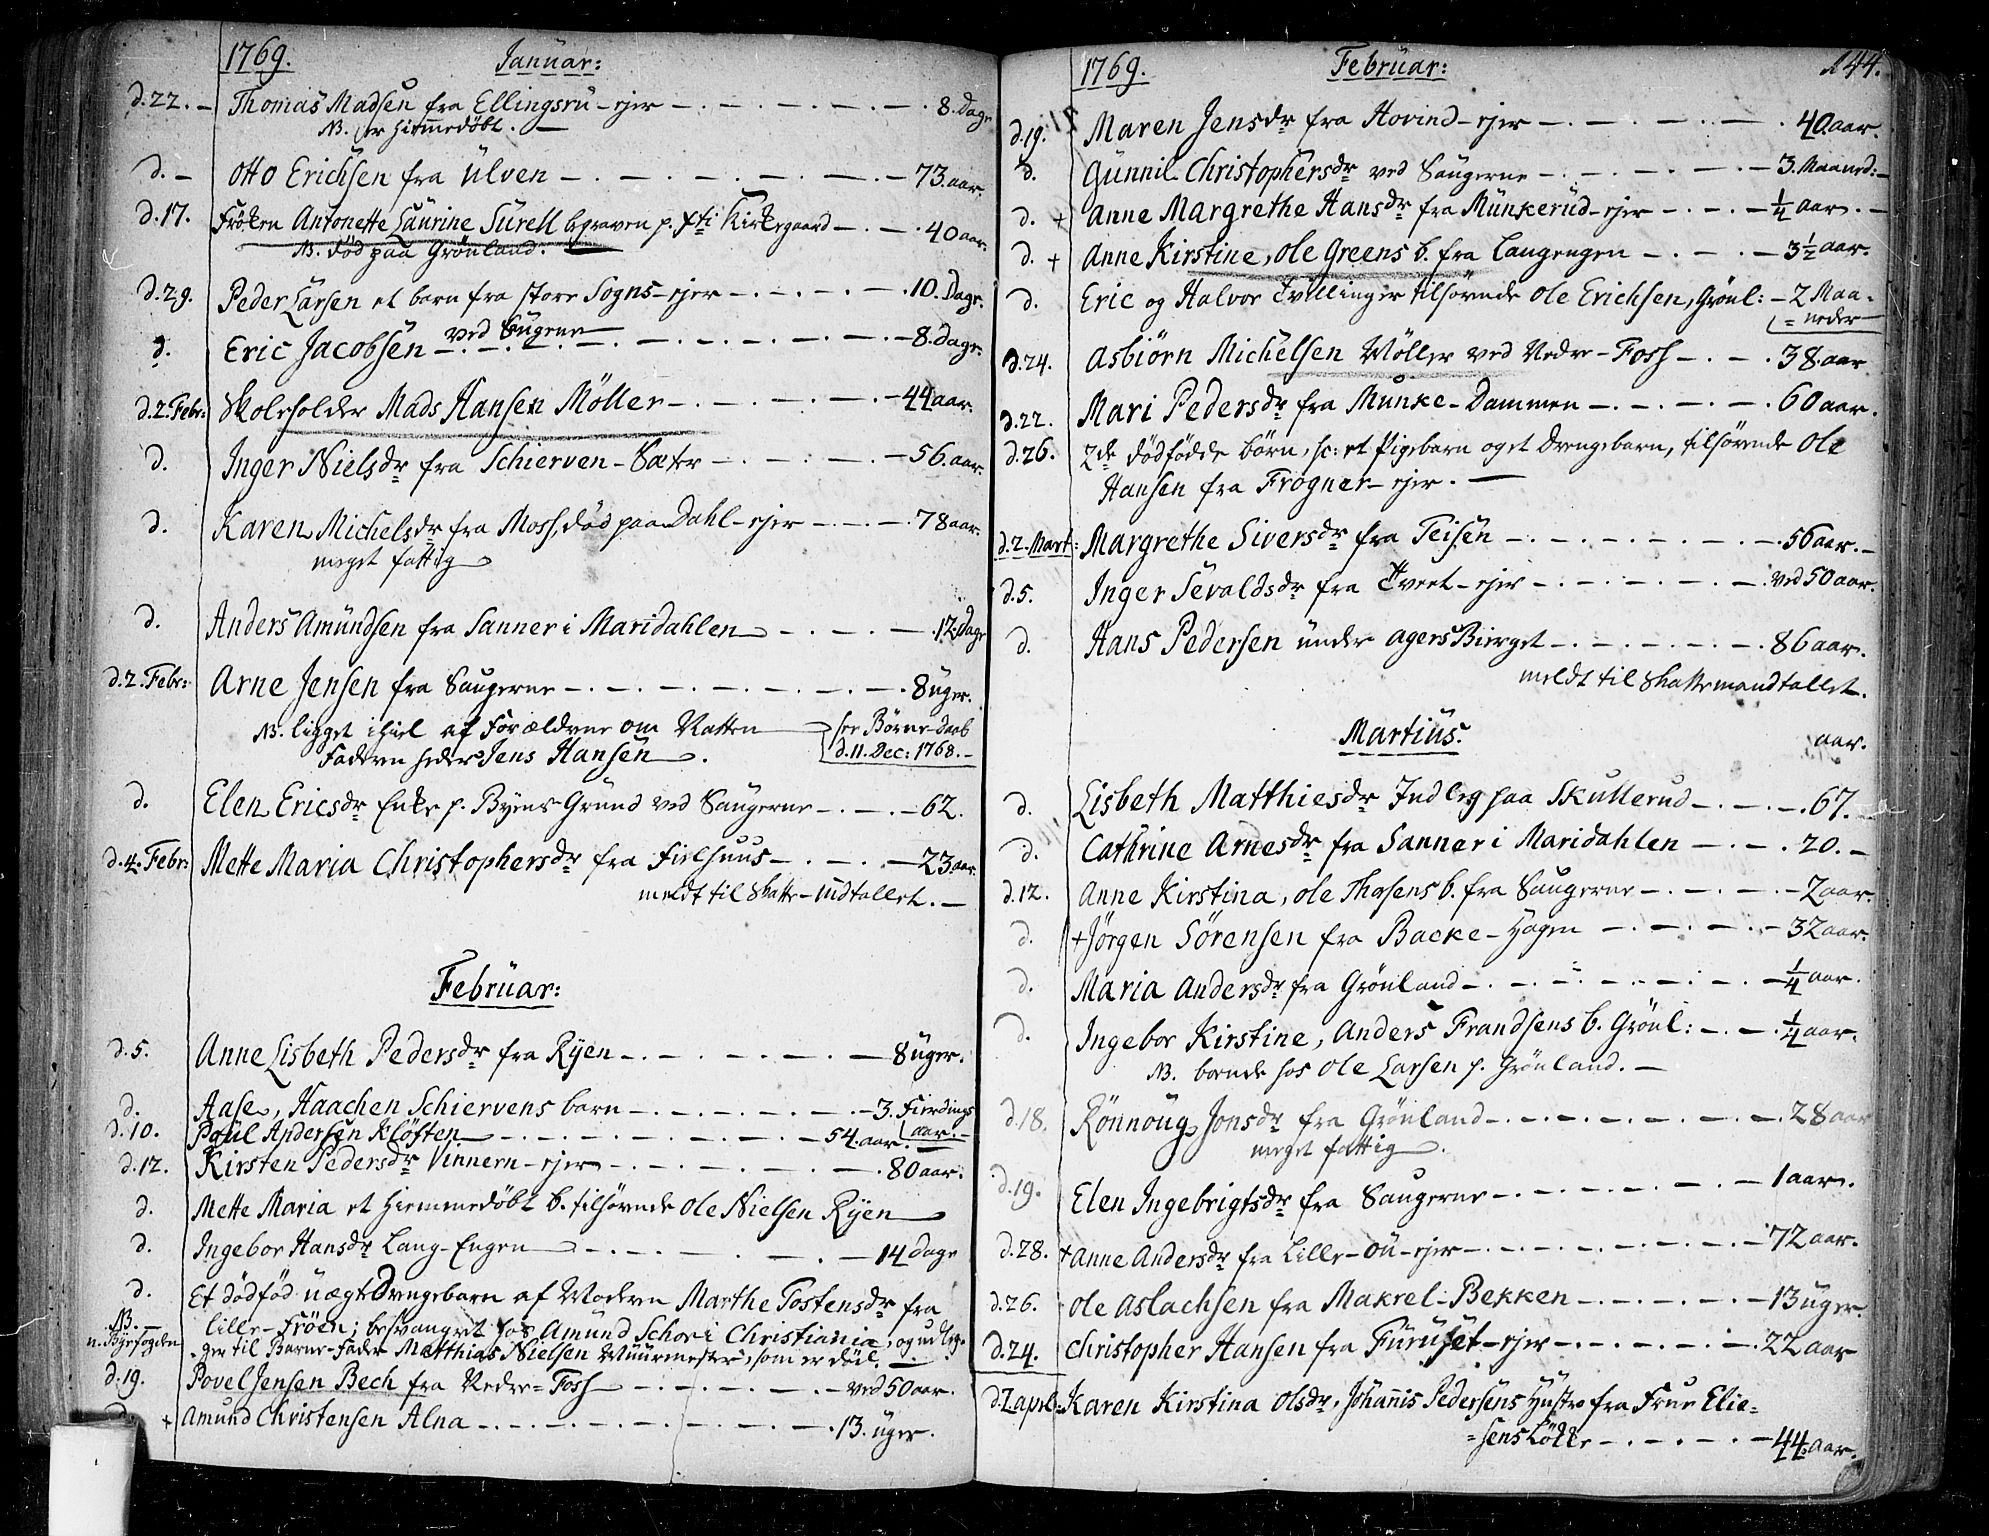 1769. Januar:
d.22. - Thomas Madsen fra Ellingsru-ejer - . - . - . - . 8. Dage
NB. er hiemmedøbt. -
d. - Otto Erichsen fra Ulven - . - . - . - . - 73. aar.
d.17. Frøken Antonette Laurine Surell begraven p. Xsti Kirkegaard - . - . 40 aar.
NB. Fød paa Grønland.
d.29. Peder Larsen et barn fra store Sogns-ejer - . - . - . 10. Dage.
d. Eric Jacobsen ved Saugene - . - . - . - . - 8. Dage.
d.2. Febr: Skoleholder Mads Hansen Möller - . - . - . - 44 aar.
d. Inger Nielsdr fra Schierven-Sæter - . - . - . - 56. aar.
d. Karen Michelsdr fra Moss, død paa Dahl-ejer - . - . - . 78 aar.
meget fattig
d. Anders Amundsen fra Sanner i Maridahlen - . - . - . 12. Dage
d.2. Febr: Arne Jensen fra Saugerne - . - . - . - . - . 8 uger.
NB. ligget ihiel af Forældrene om Natten see Börne-daab
Faderen heder Jens Hansen. d. 11. Dec: 1768. -
d. Elen Ericsdr Enke p. Byens Grund ved Saugerne - . - . - 62.
d.4. Febr: Mette Maria Christophersdr fra Fielhuus - . - . - 23 aar.
meldt til Skatte-Mdtallet. -
Februar:
d.5. Anne Lisbeth Pedersdr fra Ryen - . - . - . - 8 uger.
d. Aase, Haachen Schiervens barn - . - . - . - 3. Fierdings
aar. -
d.10. Paul Andersen Kløften - . - . - . - . 54. aar.
d.12. Kirsten Pedersdr Vinnern-ejer - . - . - . - . 80 aar.
d. Mette Maria et hiemmedøbt b. tilhørende Ole Nielsen Ryen
d. Ingebor Hansdr Lang-Engen - . - . - . - 14 Dage
d. Et dödfød uægte Drengebarn af Moderen Marthe Tostensdr fra
NB. lille-Frøen; besvangret hos Amund Schou i Christiania, og udleg-
n. Byefogden -ger til Barne-Fader Matthias Nielsen Muurmester, som er död.
d.19. Povel Jensen Bech fra Nedre-Foss - . - . - . - ved 50 aar.
d. + Amund Christensen Alna - . - . - . - . - 13. uger.
1769. Februar: 144.
d.19. Maren Jensdr fra Hovind-ejer - . - . - . - . 40. aar.
d. Gunnil Christophersdr ved Saugerne - . - . - . - 3. Maaned: -
d. + Anne Margrethe Hansdr fra Munkerud-ejer - . - . - ¼ aar. -
d. + Anne Kirstine, Ole Greens b. fra Langengen - . - . - 3½ aar.
d. Eric og Halvor Tvillinger tilhørende Ole Erichsen, Grönl: - 2 Maa-
= neder
d.24. Asbiörn Michelsen Möller ved Nedre-Foss - . - . 38. aar
d.22. Mari Pedersdr fra Munke-Dammen - . - . - . 60 aar.
d.26. 2de dödfödde börn, sc: et Pigebarn og et Drengebarn, tilhørende Ole
Hansen fra Frogner-ejer. -
d.2. Mart: Margrethe Siversdr fra Teisen - . - . - . - . 56 aar. -
d.5. Inger Sevaldsdr fra Tveet-ejer - . - . - . - . ved 50 aar.
d. Hans Pedersen under Agers Bierget - . - . - . - 86 aar.
meldt til Skattemandtallet.
Martius. aar.
d. Lisbeth Matthiesdr Indleg paa Skullerud - . - . - . 67.
d. Cathrine Arnesdr fra Sanner i Maridahlen - . - . 20. -
d.12. Anne Kirstina, Ole Thosens b. fra Saugerne - . - . - 2 aar.
d. + Jörgen Sörensen fra Backe-Hagen - . - . - . - 32 aar.
d. Maria Andersdr fra Grönland - . - . - . - . - ¼ aar.
d. Ingebor Kirstine, Anders Frandsens b. Grönl: - . - . ¼ aar.
NB. boende hos Ole Larsen p. Grönland. -
d.18. Rönnoug Jonsdr fra Grönland - . - . - . - . 28 aar
meget fattig.
d.19. Elen Ingebrigtsdr fra Saugerne - . - . - . - . - 1 aar.
d.28. + Anne Andersdr fra Lille-Ou-ejer - . - . - . - . - 72 aar.
d.26. Ole Aslachsen fra Makrel-Bekken - . - . - . - 13 uger.
d.24. Christopher Hansen fra Furuset-ejer - . - . - . 22 aar
d.2 april: Karen Kirstina Olsdr, Johannis Pedersens Hustro fra Frue Elie=
=sens Lökke - . - . - . - 44. aar.